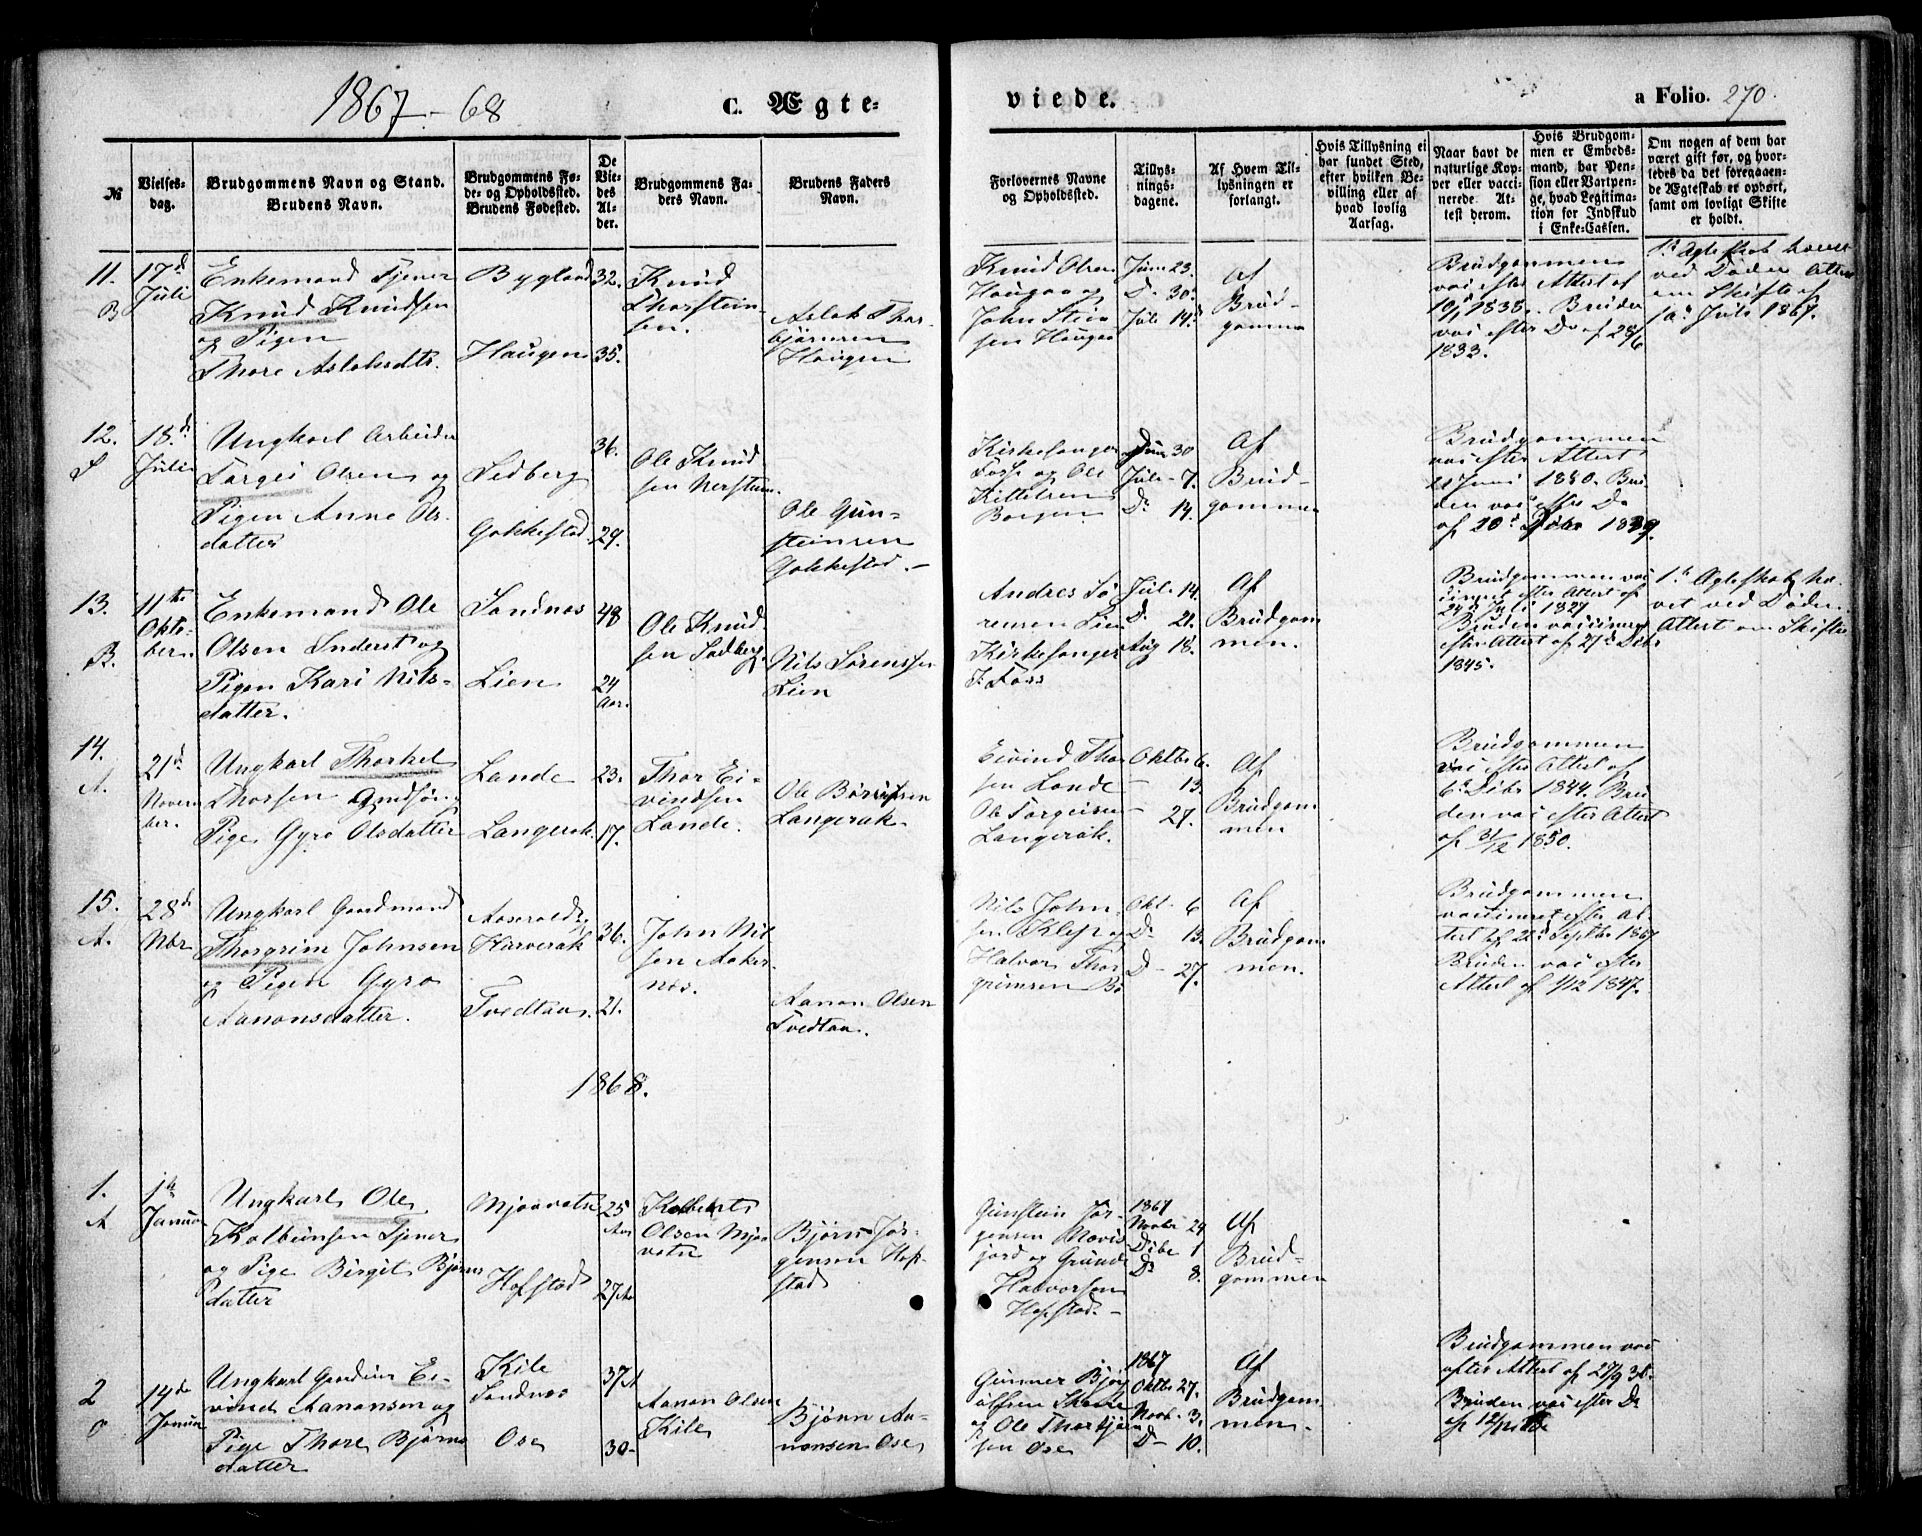 1867-68
C. Ægte-
viede.
a Folio. 270.
№
Vielses-
dag.
Brudgommens Navn og Stand.
Brudens Navn.
Brudgommens Fø-
de- og Opholdssted.
Brudens Fødested.
De
Vie-
des
Al-
der.
Brudgommens Fa-
ders Navn.
Brudens Faders
Navn.
Forlovernes Navne
og Opholdssted.
Tillys-
nings-
dagene.
Af Hvem Til-
lysningen er
forlangt.
Hvis Tillysning ei
har fundet Sted,
efter hvilken Be-
villing eller af
hvad lovlig
Aarsag.
Naar havt de
naturlige Kop-
per eller vacci-
nerede At-
test derom.
Hvis Brudgom-
men er Embeds-
mand, har Pen-
sion eller Vartpen-
ge, hvad Legitima-
tion for Indskud
i Enke-Cassen.
Om nogen af dem har
været gift før, og hvor-
ledes da det foregaaen-
de Ægteskab er ophørt,
samt om lovligt Skifte
er holdt.
11.
B
17d
Juli
Enkemand Tjener
Knud Knudsen
og Pigen
Thore Aslaksdtr.
Bygland
Haugen
32.
35.
Knud
Thorstein-
sen.
Aslak Thor-
bjørnsen
Haugen
Knud Olsen
Haugaa og
John Stia
sen Haugen
Juni 23.
D. 30.
Juli 14.
Af
Brud-
gomme
Brudgommen
vac efter Attest af
19/1 1838. Bruden
vac efter Do af 28/6
1833.
1t Ægteskab hævet
ved Døden Attest
om Skifte af
1a Juli 1867.
12.
S
18.d
Juli
Ungkarl Arbeider
Torgei Olsen og
Pigen Anne Ols-
datter
Sedberg
Gakkestad.
36.
29.
Ole Knud
sen Nerstum
Ole Gun-
steinsen
Gakkestad.-
Kirkesanger
Foss og Ole
Kittelsen
Borgen
Juni 30
Juli - 7.
D. 14.
Af
Brud-
gommen
Brudgommen
vac efter Attest
21 Juni 1840. Bru-
den vac efter Do
af 20d Dcbr 1839.
13.
B.
11te
Okto-
bern
Enkemand Ole
Olsen Enderst og
Pigen Kari Nils-
datter.
Sandnes
Lien
48
24
Aar.
Ole Knud
sen Sadberg.
Nils Sørenssen
Lien
Andres Sø
rensen Lien
Kirkesanger
F. Foss
Juli 14.
D. 21.
Aug 18.
Af
Brudgom
men.
Brudgommen vac
cineret efter Attest af
24d Juli 1827
Bruden vaccineret
efter Attest af 27d Dcbr
1845.
1t Ægteskab hæ-
vet ved Døden.
Attest om Skifte
14.
A.
21d
Novem
ber.
Ungkarl Thorkel
Thorsen Grdsøn og
Pige Gyro Olsdatter
Lande
Langerak.
23.
17.
Thor Ei-
vindsen
Lande.
Ole Børufsen
Langerak.
Eivind Thor
sen Lande
Ole Torgeisen
Langerak.
Oktbr 6.
- 13.
- 27.
Af
Brudgom
men
Brudgommen
vac efter Attest af
6d Dcbr 1844. Bru-
den vac efter Attest
af 31/12 1850.
15.
A.
28d
Nbr
Ungkarl Gaardmand
Thorgrim Johnsen
og Pigen Gyro
Aanonsdatter.
Aaseraldsg
Harverak
Tvedtaa.
36.
21.
John Nil
sen Aaker-
nes.
Aanon Olsen
Tvedtaa.
Nils John-
sen Klep og
Halvor Thor
grimsen Bø
Okt. 6
D - 13.
D - 27.
Af
Brudgom
men.
Brudgommen
vaccineret efter At-
test af 22d Septbr 1867
Bruden vac efter
Attest af 1/12 1847.
1868.
1.
A
1ste
Januar
Ungkarl Ole
Kolbeinsen Tjener
og Pige Birgit Bjørns
datter
Mjaavatn
Hofstad
25
Aar
27 Aa
Kolbeint
Olsen Mjaa
vatn
Bjørn Jør-
gensen Hof-
stad
Gunstein Jør-
gensen Mævis
jord og Grunde
Halvorsen
Hofstad.-
1867
Novbr 24
Dcbr 1
Do 8.
Af
Brud-
gommen
2
O
14de
Januar
Ungkarl Gaardm. Ei-
vind Aanonsen og
Pige Thore Bjørns
datter
Kile
Sandnes
Ose
37 A
30-
Aanon Olsen
Kile
Bjørn Aa-
nonsen Ose
Gunner Bjør
ulfsen
og Ole Thorbjørn
sen Ose
1867
Oktbr 27.
Novb. 3.
D- 10.
Af
Brudgom
men.
Brudgommen vac
efter Attest af 27/9 38.
Bruden vac efter Do
af 12/12